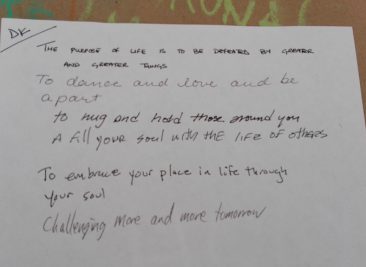 DK
THE PURPOSE OF LIFE IS TO BE DEFEATED BY GREATER
AND GREATER THINGS
To dance and love and be
apart
to hug and hold those around you
A fill your soul with the life of others
To embrace your place in life through
your soul
Challenging more and more tomorrow